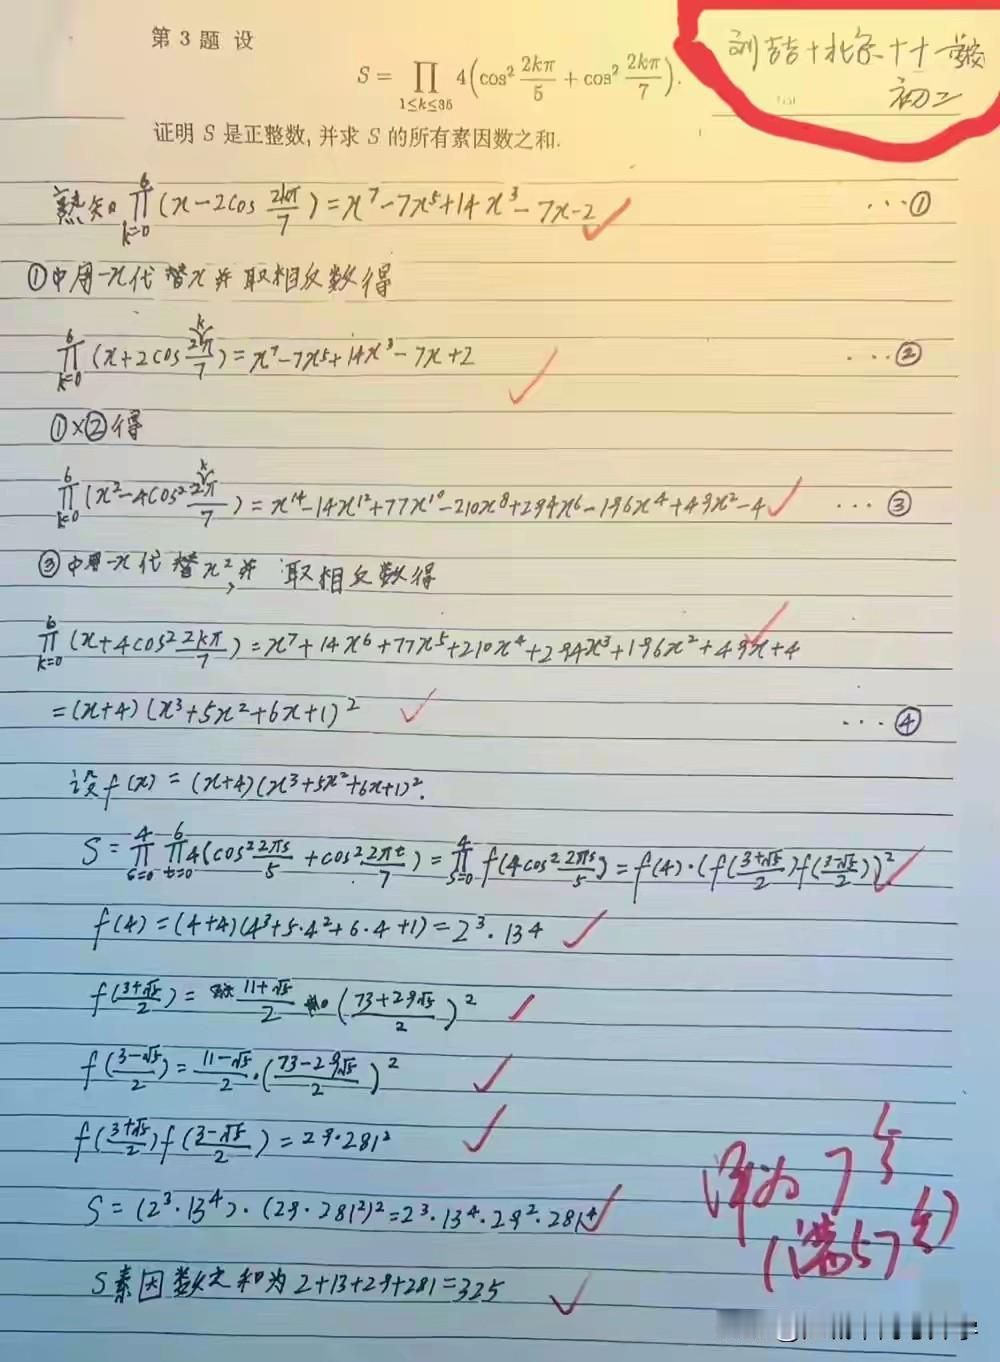 第 3 题 设
S = ∏_{1≤k≤35} 4(cos² 2kπ/5 + cos² 2kπ/7).
刘喆+北京十一学校
初二
证明 S 是正整数, 并求 S 的所有素因数之和.
熟知 ∏_{k=0}^{6} (x-2cos 2kπ/7) = x⁷-7x⁵+14x³-7x-2 …①
①中用-x代替x并取相反数得
∏_{k=0}^{6} (x+2cos 2kπ/7) = x⁷-7x⁵+14x³-7x+2 …②
①×②得
∏_{k=0}^{6} (x²-4cos² 2kπ/7) = x¹⁴-14x¹²+77x¹⁰-210x⁸+294x⁶-196x⁴+49x²-4 …③
③中用-x代替x²并取相反数得
∏_{k=0}^{6} (x+4cos² 2kπ/7) = x⁷+14x⁶+77x⁵+210x⁴+294x³+196x²+49x+4
=(x+4)(x³+5x²+6x+1)² …④
设f(x) = (x+4)(x³+5x²+6x+1)².
S = ∏_{s=0}^{4} ∏_{t=0}^{6} 4(cos² 2πs/5 + cos² 2πt/7) = ∏_{s=0}^{4} f(4cos² 2πs/5) = f(4)·(f((3+√5)/2)f((3-√5)/2))²
f(4) = (4+4)(4³+5·4²+6·4+1)² = 2³·13⁴
f((3+√5)/2) = (11+√5)/2 · ((73+29√5)/2)²
f((3-√5)/2) = (11-√5)/2 · ((73-29√5)/2)²
f((3+√5)/2)f((3-√5)/2) = 29·281²
S = (2³·13⁴)·(29·281²)² = 2³·13⁴·29²·281⁴
S素因数之和为2+13+29+281=325
评为7分
(满分7分)